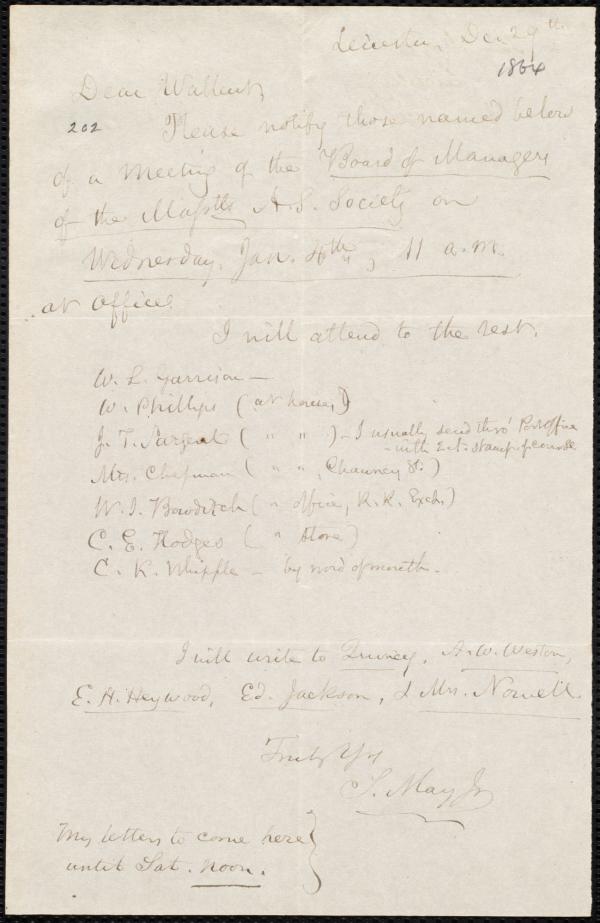 Leicester, Dec 29th
1864
Dear Wallcut,
202 Please notify those named below
of a Meeting of the Board of Managers
of the Masstts A. S. Society on
Wednesday, Jan. 4th, 11 a.m.
at Office.
I will attend to the rest.
W. L. Garrison —
W. Phillips (at house,)
J. T. Sargent ( " " ) - I usually send thro' Post Office
- with 2 ct. stamp of course
Mrs. Chapman ( " " , Chauncy St.)
W. I. Bowditch ( " office, R. R. Exch.)
C. E. Hodges ( " Store )
C. K. Whipple - by word of mouth.
I will write to Quincy, A. W. Weston,
E. H. Heywood, Ed. Jackson, & Mrs. Nowell.
Truly Yrs
S. May Jr
My letters to come here
until Sat. noon.